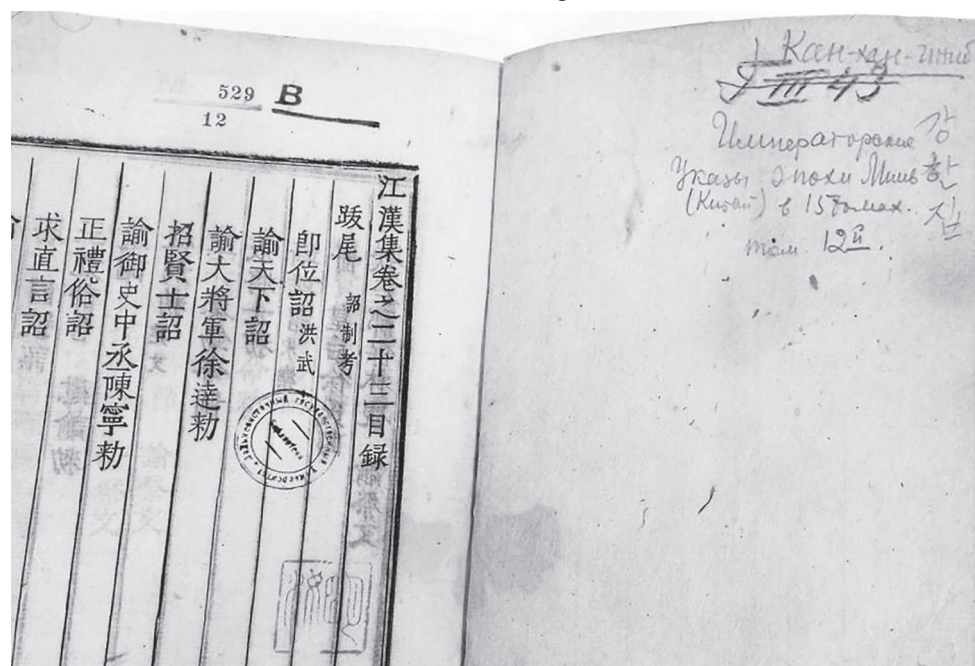 529 B
12
江漢集卷之二十三目録
跋尾 詔制考
卽位詔 洪武
諭天下詔
諭大將軍徐達勑
招賢士詔
諭御史中丞陳寧勑
正禮俗詔
求直言詔
Кан-хан-
Императорские 강
Указы эпохи Минь 한
(Китай) в 15 томах. 집
том 12й.